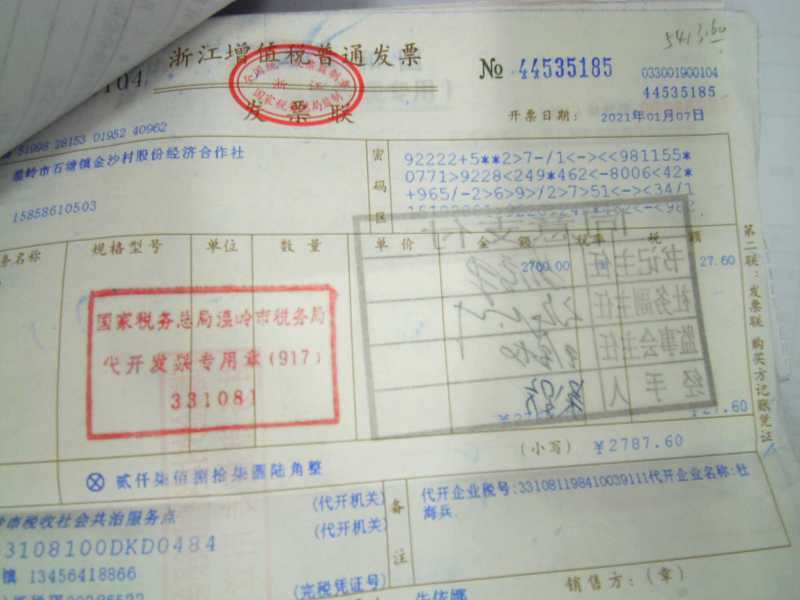 5413.60
浙江增值税普通发票
104
No 44535185
033001900104
44535185
发票联
浙江
国家税务总局监制
开票日期：
2021年01月07日
51998 28153 01952 40962
温岭市石塘镇金沙村股份经济合作社
15858610503
密码区
92222+5**2>7-/1<-><<981155*
0771>9228<249*462<-8006<42*
+965/-2>6>9>/2>7>51<-><34/1
务名称
规格型号
单位
数量
单价
金额
税率
税额
2760.00
27.60
书记主任
社务副主任
监事会主任
经手人
国家税务总局温岭市税务局
代开发票专用章(917)
331081
¥27.60
(小写)
¥2787.60
ⓧ 贰仟柒佰捌拾柒圆陆角整
第二联：发票联 购买方记账凭证
税收社会共治服务点
(代开机关)
3108100DKD0484
(代开机关)
镇 13456418866
(完税凭证号)
备注
代开企业税号:331081198410039111代开企业名称:杜
海兵.
销售方：(章)